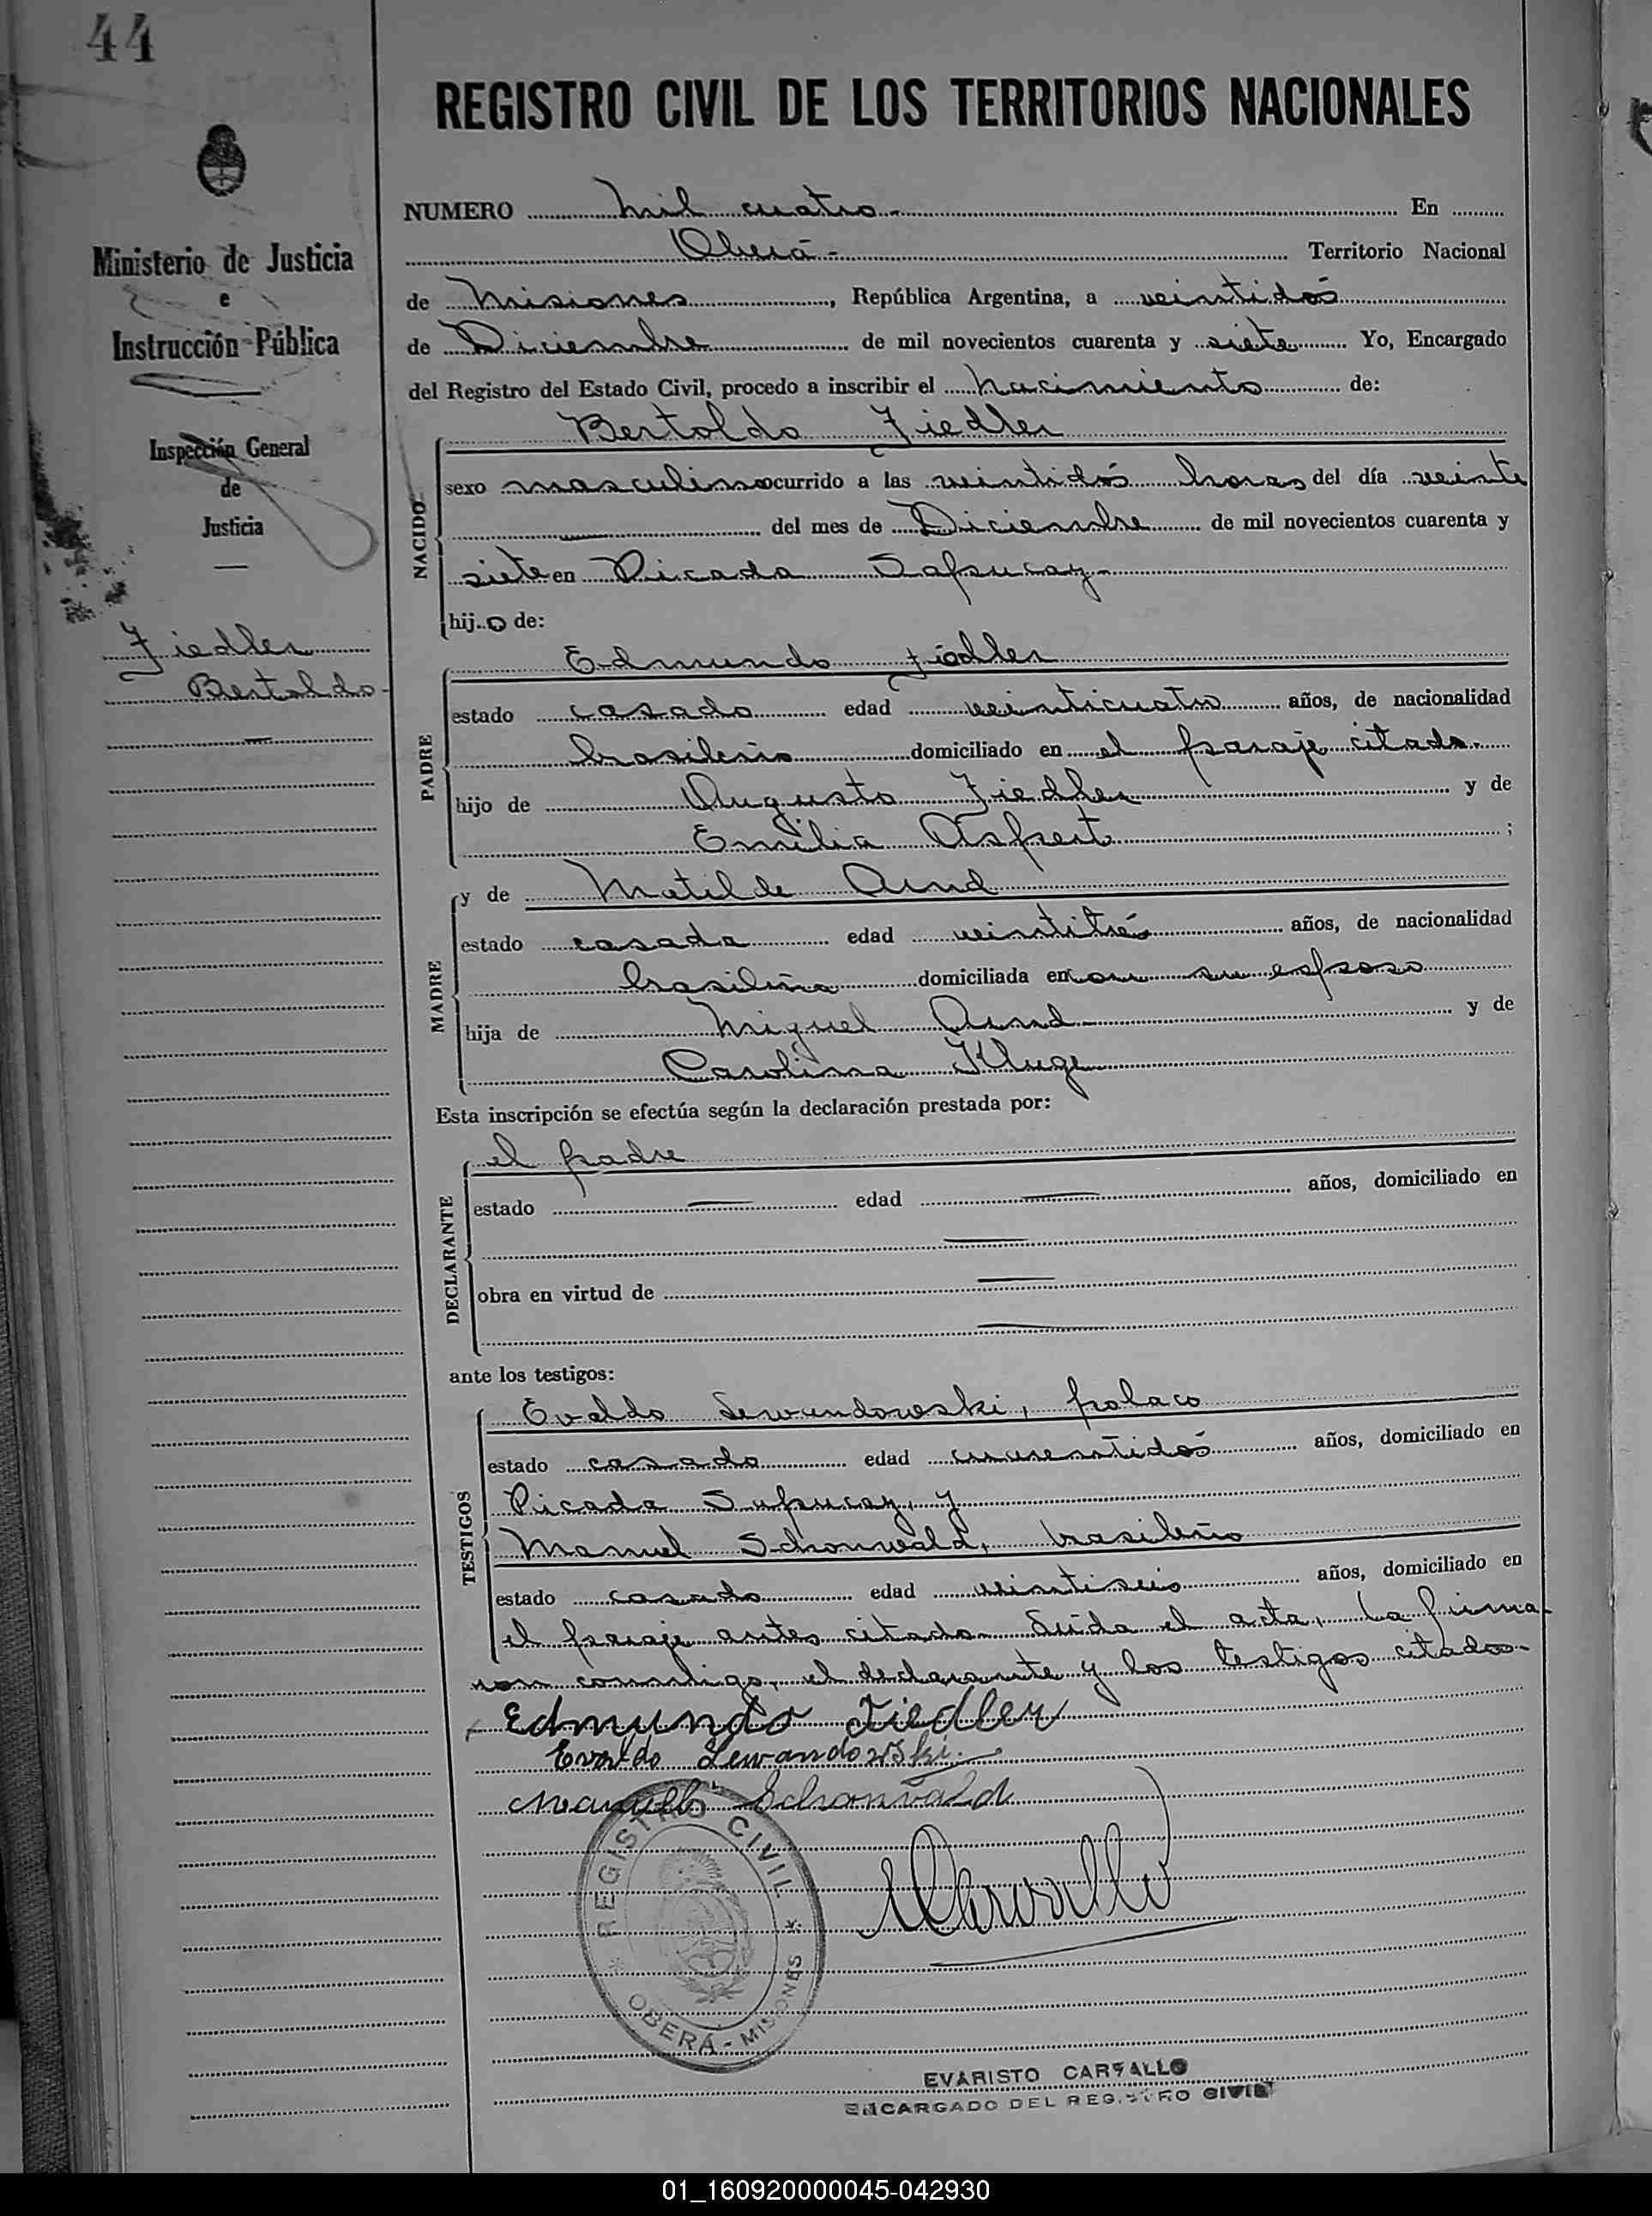 44
REGISTRO CIVIL DE LOS TERRITORIOS NACIONALES
Ministerio de Justicia
e
Instrucción Pública
Inspección General
de
Justicia
Fiedler
Bertoldo
NUMERO mil cuatro En
Oberá Territorio Nacional
de Misiones, República Argentina, a veintidós
de Diciembre de mil novecientos cuarenta y siete Yo, Encargado
del Registro del Estado Civil, procedo a inscribir el nacimiento de:
NACIDO
Bertoldo Fiedler
sexo masculino ocurrido a las veintidós horas del día veinte
del mes de Diciembre de mil novecientos cuarenta y
siete en Picada Sapucay
hijo de:
PADRE
Edmundo Fiedler
estado casado edad veinticuatro años, de nacionalidad
brasileño domiciliado en el paraje citado.
hijo de Augusto Fiedler y de
Emilia ;
MADRE
y de Matilde Arnd
estado casada edad veintitrés años, de nacionalidad
brasileña domiciliada en con su esposo
hija de Miguel Arnd y de
Carolina Kluge
Esta inscripción se efectúa según la declaración prestada por:
DECLARANTE
el padre
estado — edad — años, domiciliado en
—
obra en virtud de —
—
ante los testigos:
TESTIGOS
Evaldo Lewandowski, polaco
estado casado edad cuarentidós años, domiciliado en
Picada Sapucay, y
Manuel Schonwald, brasileño
estado casado edad veintiseis años, domiciliado en
el paraje antes citado. Leída el acta, la firma-
ron conmigo, el declarante y los testigos citados-
Edmundo Fiedler
Evaldo Lewandowski.
Manuel Schonvald
REGISTRO CIVIL
OBERÁ - MISIONES
ECarvallo
EVARISTO CARVALLO
ENCARGADO DEL REGISTRO CIVIL
01_160920000045-042930